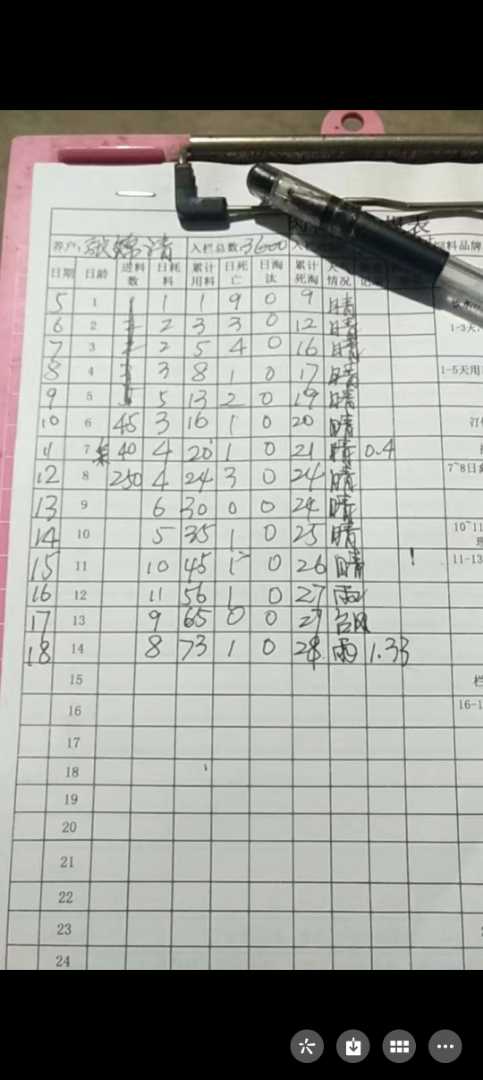 养户: 入栏总数: 3600 饲料品牌
日期 日龄 进料数 日耗料 累计用料 日死亡 日淘汰 累计死淘 情况
5 1 1 1 9 0 9 晴
6 2 2 3 3 0 12 晴 1-3天
7 3 2 5 4 0 16 晴
8 4 3 8 1 0 17 晴 1-5天用
9 5 5 13 2 0 19 晴
10 6 45 3 16 1 0 20 晴
11 7 40 4 20 1 0 21 晴 0.4
12 8 250 4 24 3 0 24 晴 7~8日
13 9 6 30 0 0 24 晴
14 10 5 35 1 0 25 晴 10~11
15 11 10 45 1 0 26 晴 11-13
16 12 11 56 1 0 27 雨
17 13 9 65 0 0 27 台风
18 14 8 73 1 0 28 雨 1.33
15
16 16-1
17
18
19
20
21
22
23
24